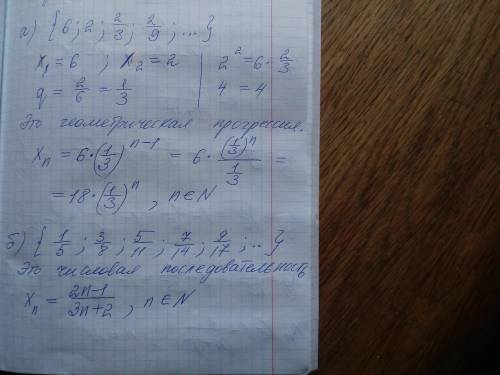 а) { 6 ; 2 ; 2/3 ; 2/9 ; ... }
x₁ = 6 ; x₂ = 2 | 2² = 6 · 2/3
q = 2/6 = 1/3 | 4 = 4
Это геометрическая прогрессия.
xₙ = 6 · (1/3)ⁿ⁻¹ = 6 · (1/3)ⁿ / (1/3) =
= 18 · (1/3)ⁿ , n ∈ N
б) { 1/5 ; 3/8 ; 5/11 ; 7/14 ; 9/17 ; .. }
Это числовая последовательность
xₙ = (2n-1)/(3n+2) , n ∈ N